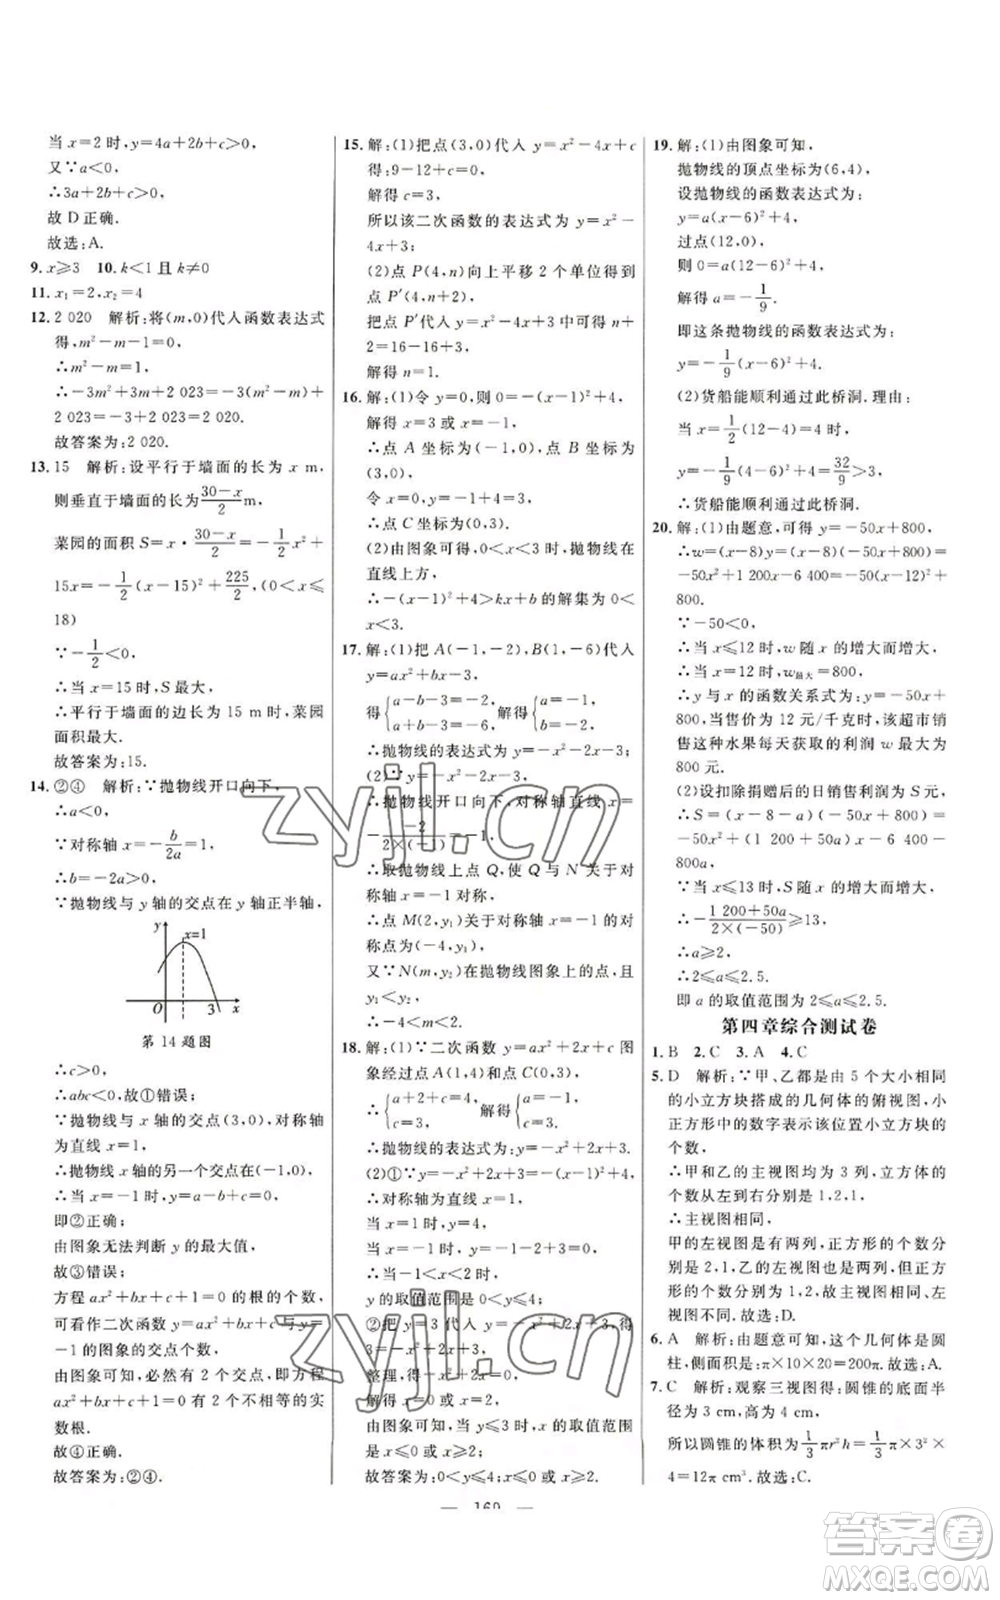 当 x=2 时,y=4a+2b+c>0,
又∵a<0,
∴3a+2b+c>0,
故 D 正确.
故选:A.
9. x≥3 10. k<1 且 k≠0
11. x₁=2,x₂=4
12. 2 020 解析:将(m,0)代入函数表达式
得,m²-m-1=0,
∴m²-m=1,
∴-3m²+3m+2 023=-3(m²-m)+
2 023=-3+2 023=2 020.
故答案为:2 020.
13. 15 解析:设平行于墙面的长为 x m,
则垂直于墙面的长为(30-x)/2 m,
菜园的面积 S=x·(30-x)/2=-1/2x²+
15x=-1/2(x-15)²+225/2,(0<x≤
18)
∵-1/2<0,
∴当 x=15 时,S 最大.
∴平行于墙面的边长为 15 m 时,菜园
面积最大.
故答案为:15.
14. ②④ 解析:∵抛物线开口向下,
∴a<0,
∵对称轴 x=-b/2a=1,
∴b=-2a>0,
∵抛物线与 y 轴的交点在 y 轴正半轴,
y
x=1
O
3
x
第 14 题图
∴c>0,
∴abc<0,故①错误;
∵抛物线与 x 轴的交点(3,0),对称轴
为直线 x=1,
∴抛物线 x 轴的另一个交点在(-1,0),
∴当 x=-1 时,y=a-b+c=0,
即②正确;
由图象无法判断 y 的最大值,
故③错误;
方程 ax²+bx+c+1=0 的根的个数,
可看作二次函数 y=ax²+bx+c 与 y=
-1 的图象的交点个数,
由图象可知,必然有 2 个交点,即方程
ax²+bx+c+1=0 有 2 个不相等的实
数根.
故④正确.
故答案为:②④.
15. 解:(1)把点(3,0)代入 y=x²-4x+c
得:9-12+c=0,
解得 c=3,
所以该二次函数的表达式为 y=x²-
4x+3;
(2)点 P(4,n)向上平移 2 个单位得到
点 P′(4,n+2),
把点 P′代入 y=x²-4x+3 中可得 n+
2=16-16+3,
解得 n=1.
16. 解:(1)令 y=0,则 0=-(x-1)²+4,
解得 x=3 或 x=-1,
∴点 A 坐标为(-1,0),点 B 坐标为
(3,0),
令 x=0,y=3,
∴点 C 坐标为(0,3).
(2)由图象可得,0<x<3,抛物线在
直线上方,
∴-(x-1)²+4>kx+b 的解集为 0<
x<3.
17. 解:(1)把 A(-1,-2),B(1,-6)代入
y=ax²+bx-3,
得{a-b-3=-2, a+b-3=-6, 解得{a=-1, b=-2.
∴抛物线的表达式为 y=-x²-2x-3;
(2)∵抛物线 y=-x²-2x-3,
∴抛物线开口向下,对称轴直线 x=
- -2/2×(-1)=-1,
∴取抛物线上点 Q,使 Q 与 N 关于对
称轴 x=-1 对称,
∴点 M(2,y₁)关于对称轴 x=-1 的对
称点为(-4,y₁),
又∵N(m,y₂)在抛物线图象上的点,且
y₁<y₂,
∴-4<m<2.
18. 解:(1)∵二次函数 y=ax²+2x+c 图
象经过点 A(1,4)和点 C(0,3),
∴{a+2+c=4, c=3, 解得{a=-1, c=3,
∴抛物线的表达式为:y=-x²+2x+3;
(2)①∵y=-x²+2x+3=-(x-1)²+4,
∴对称轴为直线 x=1,
当 x=1 时,y=4,
当 x=-1 时,y=-1-2+3=0,
∴当-1<x<2 时,
y 的取值范围是 0<y≤4;
②把 y=3 代入 y=-x²+2x+3 得
3=-x²+2x+3,
整理,得-x²+2x=0,
解得 x=0 或 x=2,
由图象可知,当 y≤3 时,x 的取值范围
是 x≤0 或 x≥2,
故答案为:0<y≤4;x≤0 或 x≥2.
19. 解:(1)由图象可知,
抛物线的顶点坐标为(6,4),
设抛物线的函数表达式为:
y=a(x-6)²+4,
过点(12,0),
则 0=a(12-6)²+4,
解得 a=-1/9.
即这条抛物线的函数表达式为:
y=-1/9(x-6)²+4.
(2)货船能顺利通过此桥洞.理由:
当 x=1/2(12-4)=4 时,
y=-1/9(4-6)²+4=32/9>3,
∴货船能顺利通过此桥洞.
20. 解:(1)由题意,可得 y=-50x+800,
∴w=(x-8)y=(x-8)(-50x+800)=
-50x²+1 200x-6 400=-50(x-12)²+
800.
∵-50<0,
∴当 x≤12 时,w 随 x 的增大而增大,
∴当 x=12 时,w最大=800,
∴y 与 x 的函数关系式为 y=-50x+
800,当售价为 12 元/千克时,该超市销
售这种水果每天获取的利润 w 最大为
800 元.
(2)设扣除捐赠后的日销售利润为 S 元,
∴S=(x-8-a)(-50x+800)=
-50x²+(1 200+50a)x-6 400-
800a,
∵当 x≤13 时,S 随 x 的增大而增大,
∴-(1 200+50a)/2×(-50)≥13,
∴a≥2.
∴2≤a≤2.5.
即 a 的取值范围为 2≤a≤2.5.
第四章综合测试卷
1. B 2. C 3. A 4. C
5. D 解析:∵甲、乙都是由 5 个大小相同
的小立方块搭成的几何体的俯视图,小
正方形中的数字表示该位置小立方块的
个数,
∴甲和乙的主视图均为 3 列,立方体的
个数从左到右分别是 1,2,1,
∴主视图相同,
甲的左视图是有两列,正方形的个数分
别是 2,1,乙的左视图也是两列,但正方
形的个数分别为 1,2,故主视图相同、左
视图不同.故选:D.
6. A 解析:由题意可知,这个几何体是圆
柱,侧面积是:π×10×20=200π.故选:A.
7. C 解析:观察三视图得:圆锥的底面半
径为 3 cm,高为 4 cm,
所以圆锥的体积为 1/3πr²h=1/3π×3²×
4=12π cm³.故选:C.
— 169 —
zyjl.cn
zyjl.cn
答案圈
MXQE.COM